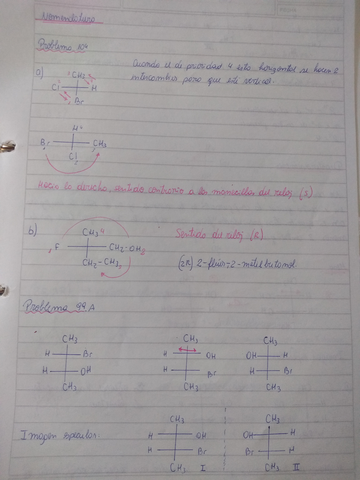 Nomenclatura
Problema
Cuando el de prioridad 4 está horizontal se hacen 2
intercambios para que esté vertical.
a)
CH3
Cl H
Br
H
Br CH3
Cl
Hacia la derecha, sentido contrario a las manecillas del reloj (S)
b)
CH3 4
F CH2-OH
CH2-CH3
Sentido del reloj (R)
(2R) 2-fluor-2-metilbutanol
Problema 99A
CH3 CH3 CH3
H Br H OH OH H
H OH H Br H Br
CH3 CH3 CH3
Imagen especular:
CH3 CH3
H OH OH H
H Br Br H
CH3 I CH3 II